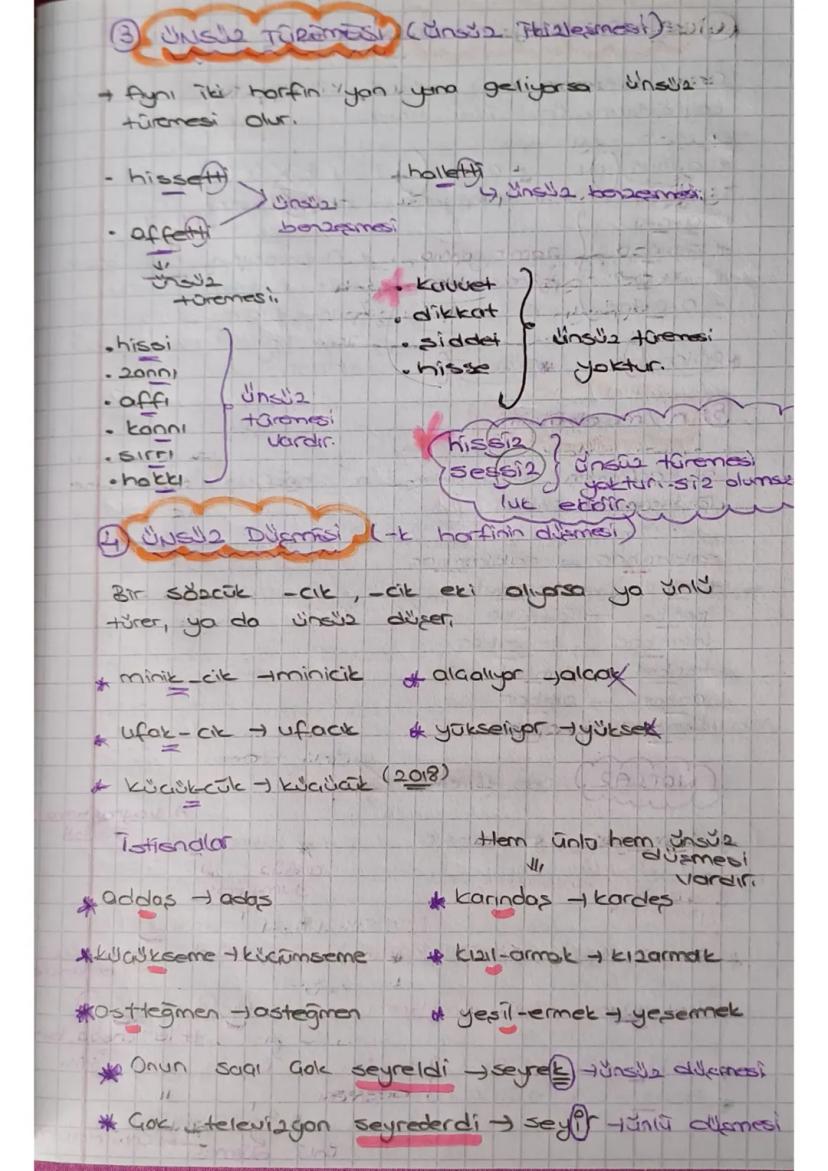 ③ ÜNSÜZ TÜREMESİ (Ünsüz İkizleşmesi)
→ Aynı iki harfin yan yana geliyorsa ünsüz
türemesi olur.
- hissetti
halletti
↳ ünsüz benzeşmesi
• affetti
ünsüz
benzeşmesi
ünsüz
türemesi.
• hissi
• zannı
• affı
• kannı
• sırrı
• hakkı
ünsüz
türemesi
vardır.
• kuvvet
• dikkat
• şiddet
• hisse
ünsüz türemesi
yoktur.
hissiz
sessiz
ünsüz türemesi
yoktur. -siz olumsuz
luk ekidir.
④ ÜNSÜZ DÜŞMESİ (-k harfinin düşmesi)
Bir sözcük -cık, -cik eki alıyorsa ya ünlü
türer, ya da ünsüz düşer.
* minik-cik → minicik
* alçalıyor → alçak
* ufak-cık → ufacık
* yükseliyor → yüksek
* küçükcük → küçücük (2018)
İstisnalar
Hem ünlü hem ünsüz
düşmesi
vardır.
* addaş → adaş
* karındaş → kardeş
* küçükseme → küçümseme
* kızıl-armak → kızarmak
* astteğmen → asteğmen
* yeşil-ermek → yeşermek
* Onun saçı çok seyreldi → seyrek → ünsüz düşmesi
* Çok televizyon seyrederdi → seyir → ünlü düşmesi